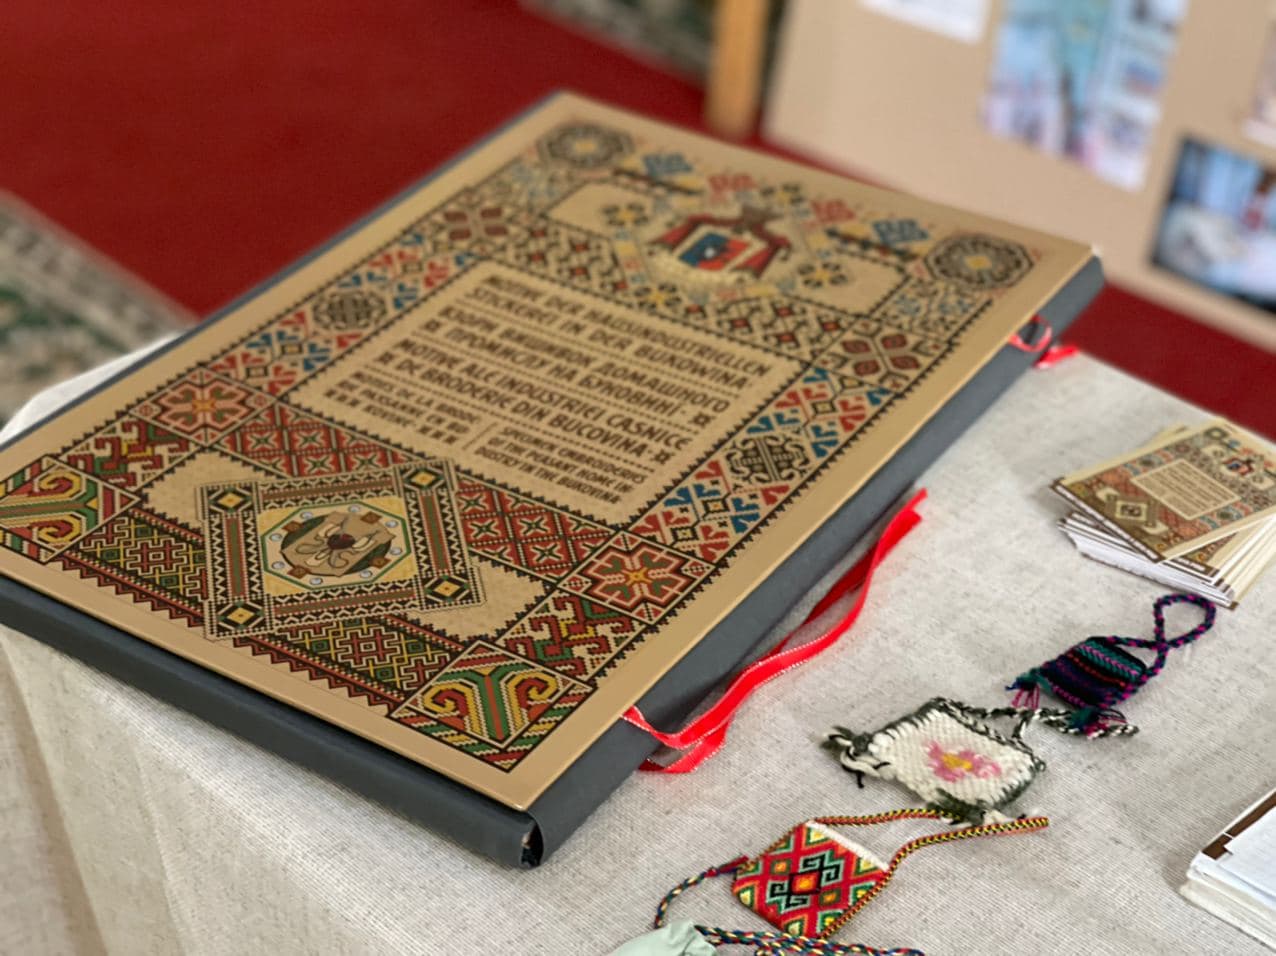 MOTIVE DER HAUSINDUSTRIELLEN
STICKEREI IN DER BUKOWINA
ВЗОРИ ВИШИВОК ДОМАШНОГО
ПРОМИСЛУ НА БУКОВИНІ
MOTIVE ALE INDUSTRIEI CASNICE
DE BRODERIE DIN BUCOVINA
MOTIFES DE LA BROD.
PAYSANNE EN BU-
KOVINE
DESIGN EMBROIDERIES
OF THE PEASANT HOME IN-
DUSTRY IN THE BUKOVINA